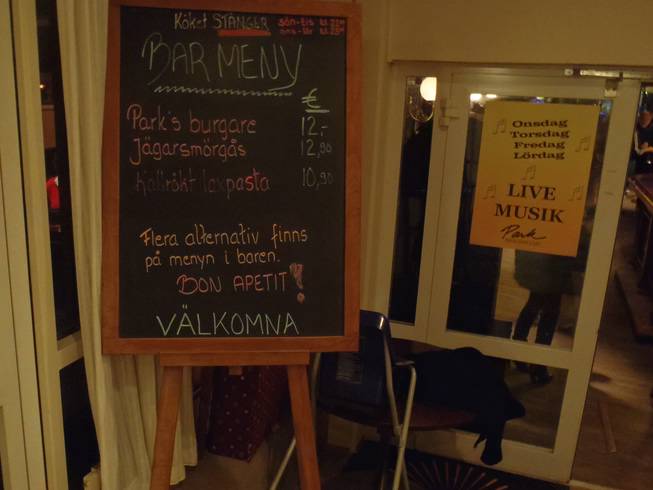 Köket STÄNGER
sön-tis
BAR MENY
€
Park's burgare 12.-
Jägarsmörgås 12,90
Kallrökt laxpasta 10,90
Flera alternativ finns
på menyn i baren.
BON APETIT!
VÄLKOMNA
Onsdag
Torsdag
Fredag
Lördag
LIVE
MUSIK
Park